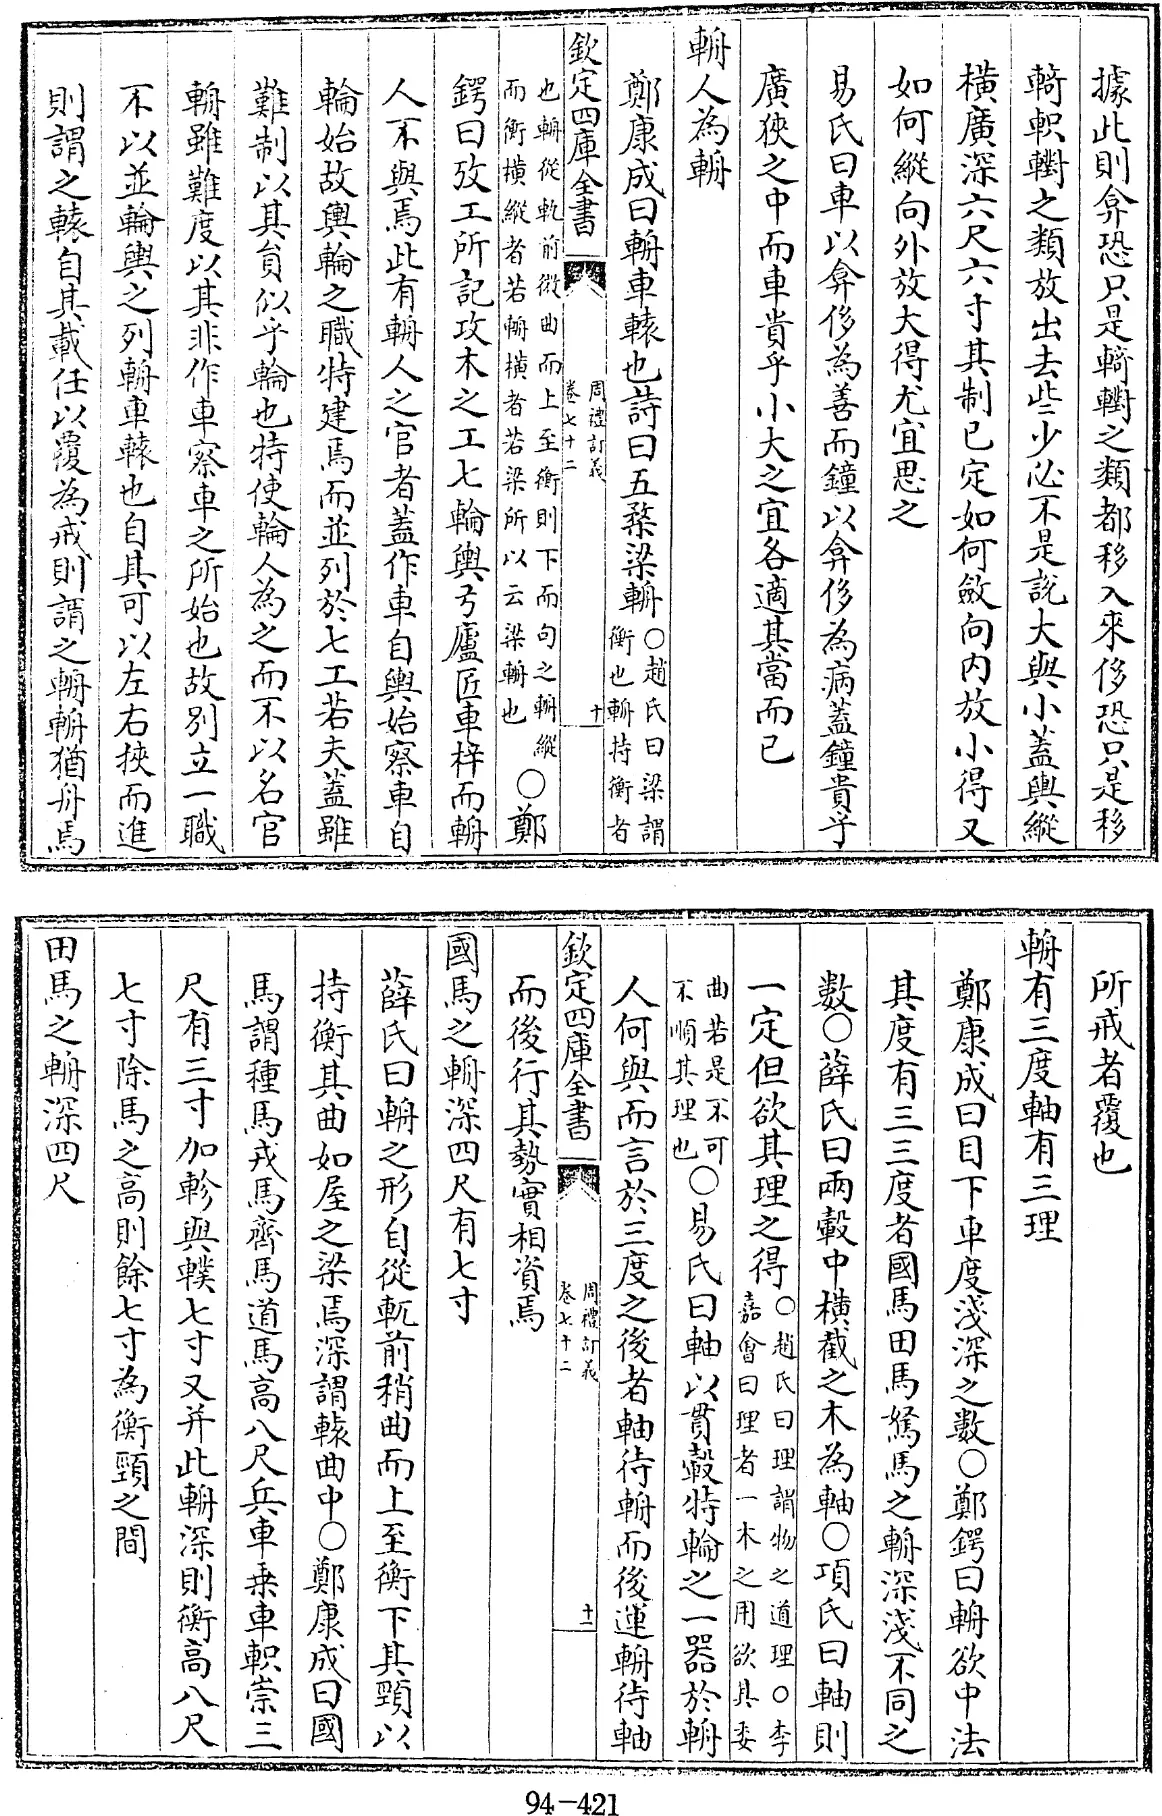 據此則弇恐只是輢轛之類都移入來侈恐只是移
輢軹轛之類放出去些少必不是說大與小蓋輿縱
橫廣深六尺六寸其制已定如何斂向内放小得又
如何縱向外放大得尤宜思之
易氏曰車以弇侈為善而鐘以弇侈為病蓋鐘貴乎
廣狹之中而車貴乎小大之宜各適其當而已
輈人為輈
鄭康成曰輈車轅也詩曰五楘梁輈○趙氏曰梁謂
衡也輈持衡者
欽定四庫全書
周禮訂義
卷七十二
十
也輈從軌前微曲而上至衡則下而句之輈縱
而衡橫縱者若輈橫者若梁所以云梁輈也○鄭
鍔曰攷工所記攻木之工七輪輿弓廬匠車梓而輈
人不與焉此有輈人之官者蓋作車自輿始察車自
輪始故輿輪之職特建焉而並列於七工若夫蓋雖
難制以其員似乎輪也特使輪人為之而不以名官
輈雖難度以其非作車察車之所始也故别立一職
不以並輪輿之列輈車轅也自其可以左右挾而進
則謂之轅自其載任以覆為戒則謂之輈輈猶舟焉
所戒者覆也
輈有三度軸有三理
鄭康成曰目下車度淺深之數○鄭鍔曰輈欲中法
其度有三三度者國馬田馬駑馬之輈深淺不同之
數○薛氏曰兩轂中橫截之木為軸○項氏曰軸則
一定但欲其理之得○趙氏曰理謂物之道理○李
嘉會曰理者一木之用欲其委
曲若是不可
不順其理也○易氏曰軸以貫轂特輪之一器於輈
人何與而言於三度之後者軸待輈而後運輈待軸
欽定四庫全書
周禮訂義
卷七十二
十一
而後行其勢實相資焉
國馬之輈深四尺有七寸
薛氏曰輈之形自從軓前稍曲而上至衡下其頸以
持衡其曲如屋之梁焉深謂轅曲中○鄭康成曰國
馬謂種馬戎馬齊馬道馬高八尺兵車乘車軹崇三
尺有三寸加軫與轐七寸又并此輈深則衡高八尺
七寸除馬之高則餘七寸為衡頸之間
田馬之輈深四尺
94-421